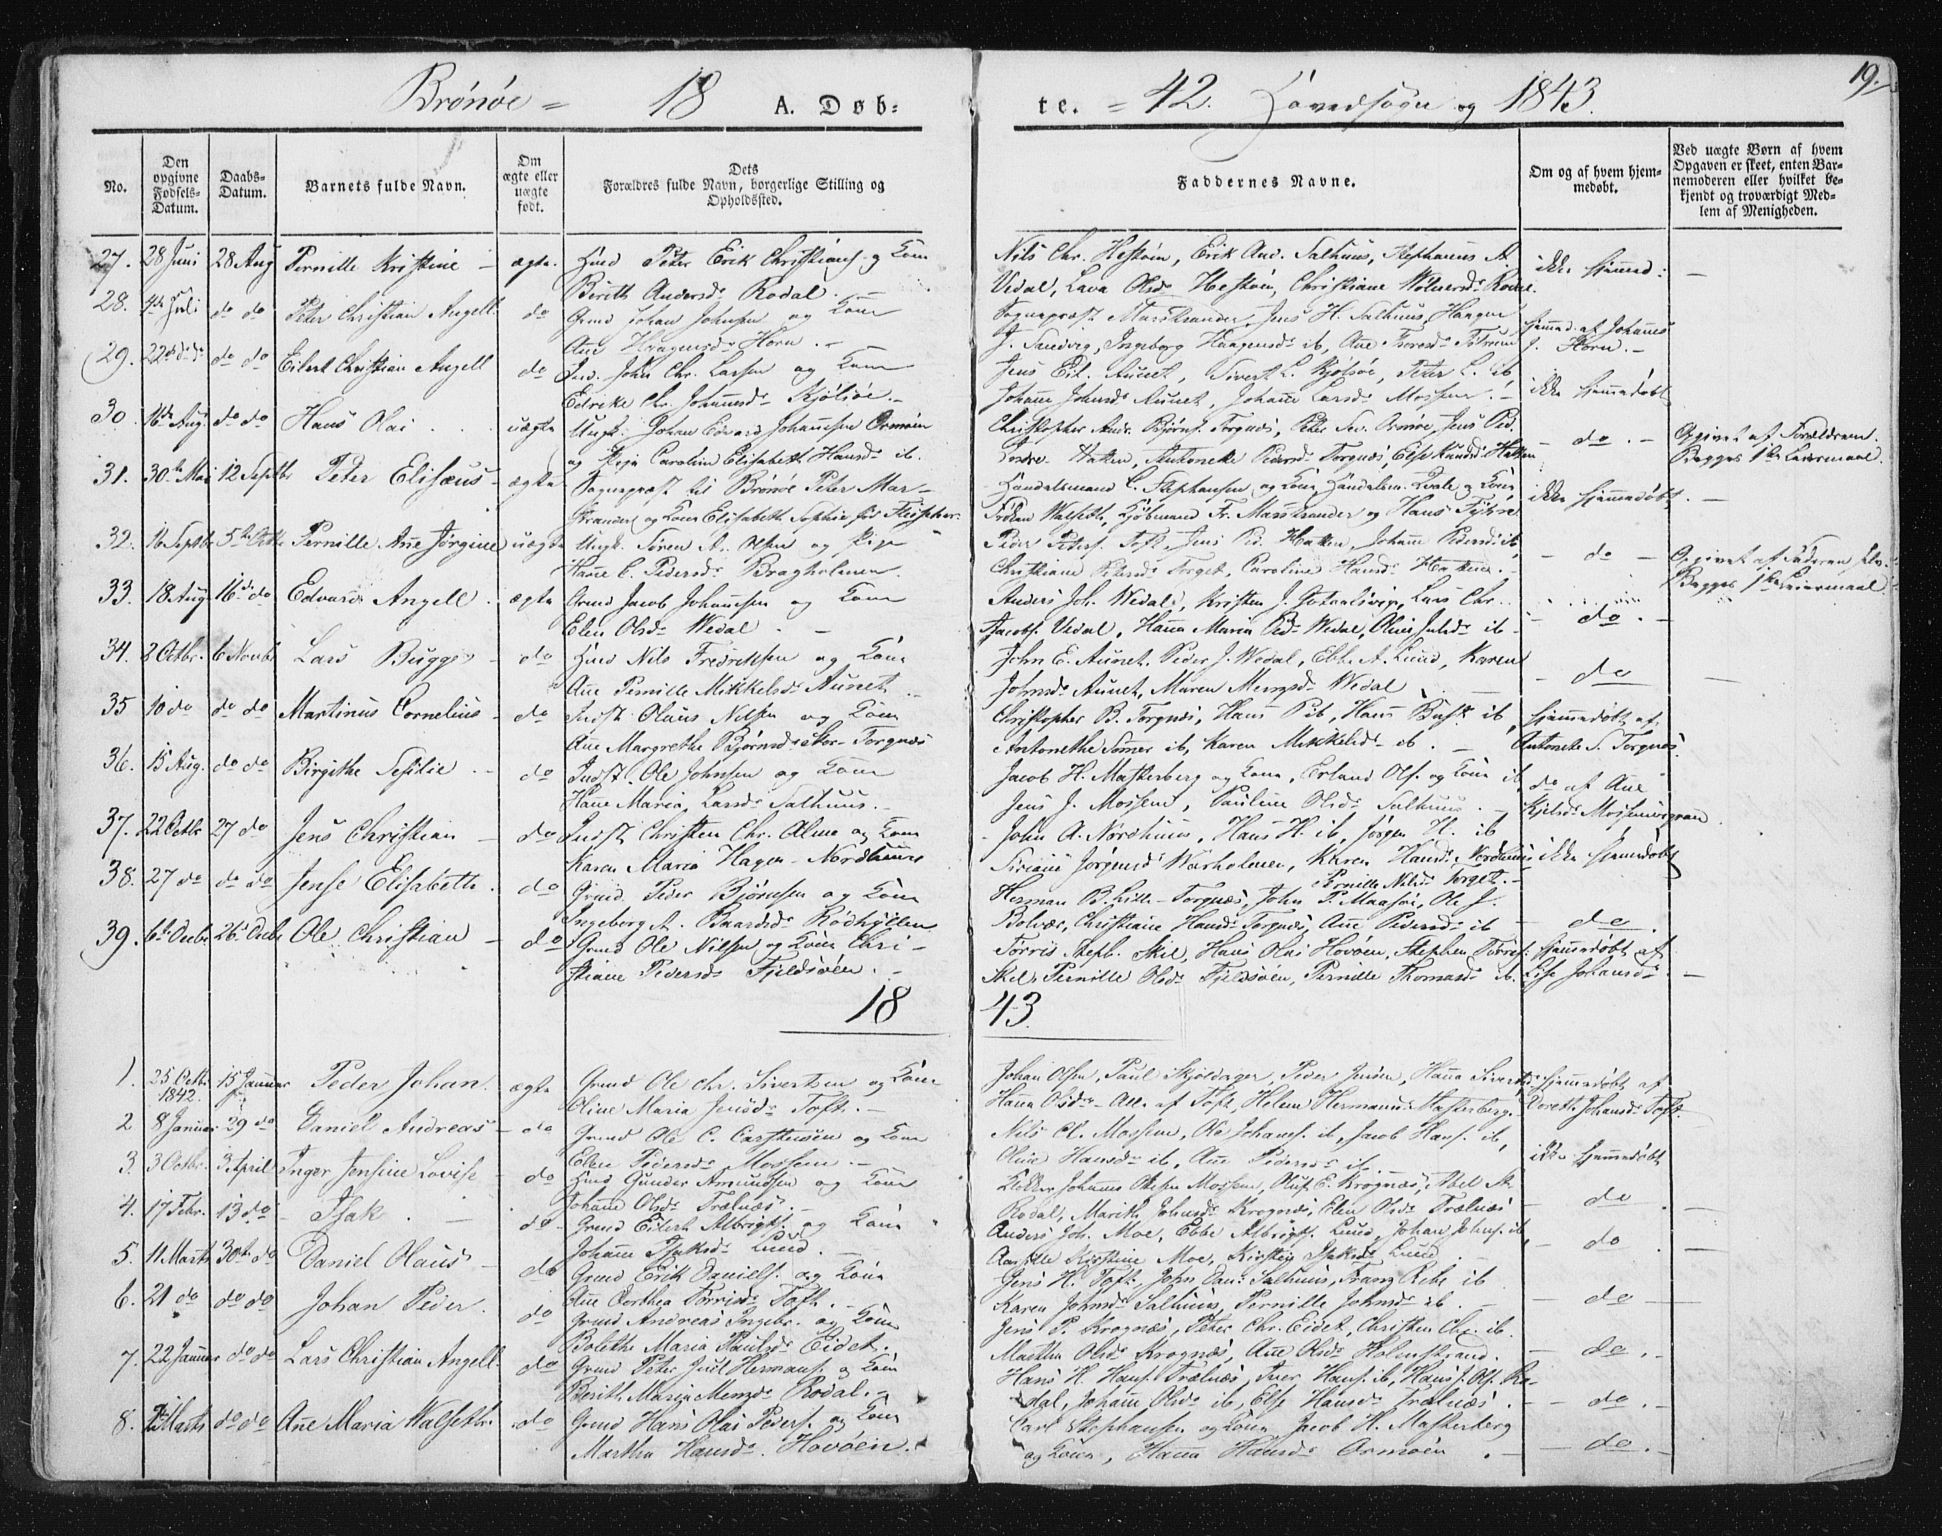 Brönöe = 18 A. Døb-
te. = 42. Hovedsogn og 1843.
19.
No.
Den opgivne Fødsels-Datum.
Daabs-Datum.
Barnets fulde Navn.
Om ægte eller uægte født.
Dets Forældres fulde Navn, borgerlige Stilling og Opholdssted.
Faddernes Navne.
Om og af hvem hjemmedøbt.
Ved uægte Børn af hvem Opgaven er skeet, enten Barnemoderen eller hvilket bekjendt og troværdigt Medlem af Menigheden.
27. 28 Juni 28 Aug Pernille Kristine - ægte. Huusmd Peter Erik Christians. og Kone
Berith Andersd. Rodal. -
Nils Chr. Hestöen, Erik And. Salhuus, Stephanus A.
Vedal, Lava Olsd Hestöen, Christiane
ikke hjemmed:
28. 4de Juli do do Peter Christian Angell. do Grmd Johan Johnsen og Kone
Ane Haagensd. Horn. -
Sognepræst Marstrander, Jens H. Salhuus, Haagen
J. Sandvig, Ingeborg Haagensd. ib,
hjemmed. af Johannes
J. Horn. -
29. 22de do do do Eilert Christian Angell do Ind. John Chr. Larsen og Kone
Edrike Chr. Johannesd. Kjölsöe. -
Jens Eil. Aunet, Sivert L. Kjölsöe, Peter L. ib
Johanne Johnsd. Aunet, Johanne Larsd. Mossem. -
ikke hjemmedöbt
30. 16de Aug. do do Hans Olai uægte Ungk. Johan Edvard Johannesen Ormöen
og Pige Caroline Elisabeth Hansd. ib.
Christopher Andr. Björns. Torgnæs, Peter Sör. Ormöe, Jens Ped.
Hatten, Antonette Pedersd. Torgnæs, Else Knudsd. Hatten
- do. - Opgivet af Forældrene.
Begges 1ste Leiermaal.
31. 30te Mai 12 Septbr Peter Elisæus - ægte Sognepræst til Brönöe Peter Mar-
strander og Kone Elisabeth Sophie föd Fleischer.
Handelsmand C. Stephansen og Kone, Handelsm. Qvale og Kone
Fröken Walseth, Kjöbmand Fr. Marstrander og Hans
ikke hjemmedöbt. -
32. 16 Septbr 5te Octbr Pernille Ane Jörgine uægte Ungk. Sören A. Olsen og Pige
Hanne C. Pedersd. Bragholmen.
Peder Peders. Toft, Jens Ped. Hatten, Johanne Pedersd. ib,
Christiane Petersd. Torget, Caroline Hansd. Hatten. -
- do - Opgivet af Faderen selv.
Begges 1ste Leiermaal.
33. 18 Aug 16de do Edvard Angell. ægte Grmd Jacob Johannesen og Kone
Elen Olsd. Wedal. -
Anders Joh. Wedal, Kristen J. Lars Chr.
Jacobs. Vedal, Hanna Maria Ped. Wedal, Oline ib -
- do. -
34. 2 Octbr. 6 Novbr Lars Bugge - do Huusmd Nils Fredriksen og Kone
Ane Pernille Mikkelsd. Aunet. -
John E. Aunet, Peder J. Wedal, Ebbe A. Lund, Karen
Johnsd. Aunet, Maren Wedal
- do -
35 10 do do do Martinus Cornelius - do Indst. Olaus Nilsen og Kone
Ane Margrethe Björnsd. Store-Torgnæs
Christopher B. Torgnæs, Hans P. ib, Hans Busk ib
Antonethe ib, Karen Mikkelsd. ib. -
hjemmedöbt af
Antonete S. Torgnæs.
36. 15 Aug. do do Birgithe Sesilie - do Indst. Ole Johnsen og Kone
Hanne Maria Larsd. Salhuus. -
Jacob H. Masterberg og Kone, Erland Ols. og Kone ib
Jens J. Mossem, Pauline Olsd. Salhuus. -
do af Ane
Kjelsd.
37. 22 Octbr 27 do Jens Christian - do Indst Christen Chr. Alme og Kone
Karen Maria Hagen - Nordhuus
John A. Nordhuus, Hans H. ib, Jörgen H. ib
Siviane Jörgensd. Warholmen, Karen Hansd. Nordhuus
ikke hjemmedöbt
38. 27 do do do Jense Elisabeth. do Grmd. Peder Björnsen og Kone
Ingeborg A. Baardsd. Rödhylten
Pernille Nilsd. Torget. -
Herman B. Lille-Torgnæs, John P. Maasöi, Ole J.
Bolvær, Christiane Hansd. Torgnæs, Ane Pedersd. ib
- do.
39. 6te Decbr 26de Decbr Ole Christian - do Grmd Ole Nilsen og Kone Chri-
stiane Pedersd. Fjeldsöen. -
Torris Steph. Skil, Hans Olai Hovöen, Stephen Torris.
Skil, Pernille Olsd. Fjeldsöen, Pernille Thomasd. ib.
hjemmedöbt af
Lise Johansd. -
18 43.
1. 25 Octbr 1842. 15 Januar Peder Johan. ægte Grmd Ole Chr. Sivertsen og Kone
Oline Maria Jensd. Toft. -
Johan Olsen, Paul Skjeldager, Peder Hanna Sivertsd.
Hanna Olsd. - Alle af Toft, Helene Hermann. Masterberg.
hjemmedöbt af
Doreth. Johansd. Toft.
2 8 Januar 29 do Daniel Andreas - do Grmd Ole C. Carstensen og Kone
Elen Pedersd. Mossem. -
Nils Cl. Mossem, Ole Johans. ib, Jacob Hans. ib,
Oline Hansd. ib, Ane Pedersd. ib. -
ikke hjemmedöbt
3. 3 Octbr. 3 April Inger Jensine Lovise - do Huusmd Gunder Amundsen og Kone
Johanne Olsd. Trælnæs. -
Klokker Johannes Mossem, Oluf E. Krognæs, Abel A.
Rodal, Marith Johnsd. Krognæs, Elen Olsd. Trælnæs
- do
4. 17 Febr. 13 do - Isak - do - Grmd Eilert Albrigts. og Kone
Johanne Isaksd. Lund. -
Anders Joh. Moe, Ebbe Albrigts. Lund, Johan Johns. ib,
Kirstine Moe, Kirsten Isaksd. Lund
- do
5. 11 Marts 30te do Daniel Olaus - do Grmd Erik Daniels. og Kone
Ane Dorthea Torrisd. Toft. -
Jens H. Toft, John Dan. Salhuus, Frants Rebe ib
Karen Johnsd. Salhuus, Pernille Johnsd. ib. -
- do -
6. 21 do do do Johan Peder. do Grmd Andreas Ingebr. og Kone
Bolethe Maria Paulsd. Eidet. -
Jens P. Krognæs, Peter Chr. Eidet, Christen Chr. ib.
Martha Olsd. Krognæs, Ane Olsd. Holmstrand.
- do. -
7. 22 Januar do do Lars Christian Angell. do Grmd Peter Juul Hermans. og Kone
Berith Maria Monsd. Rodal. -
Hans H. Hans. Trælnæs, Iver Hans. ib, Hans J. Ols. Ro-
dal, Johanne Olsd. ib, Else Hansd. Trælnæs. -
- do. -
8. Marts do do Ane Maria Walseth. do Grmd Hans Olai Peders. og Kone
Martha Hansd. Hovöen.
Carl Stephansen og Kone, Jacob H. Masterberg
og Kone, Hanna Hansd. Ormöen. -
- do. -